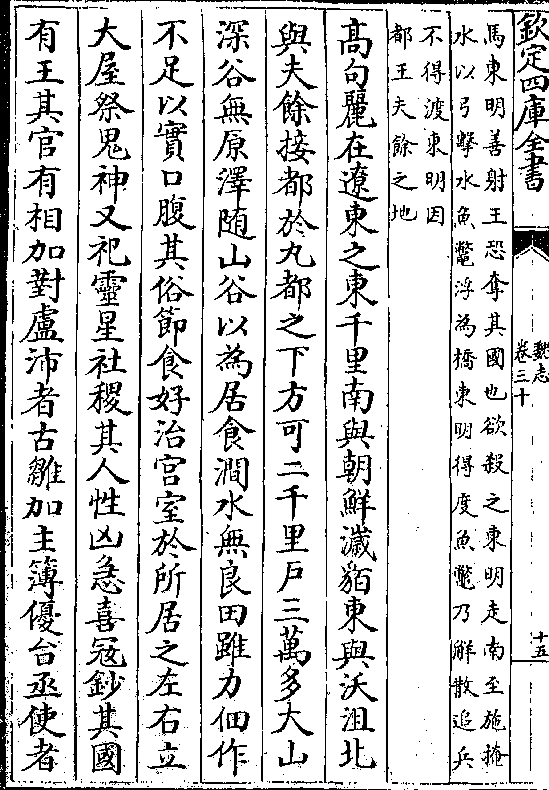 欽定四庫全書
魏志
卷三十
十五
馬東明善射王恐奪其國也欲殺之東明走南至施掩
水以弓擊水魚鼈浮為橋東明得度魚鼈乃解散追兵
不得渡東明因
都王夫餘之地
高句麗在遼東之東千里南與朝鮮濊貊東與沃沮北
與夫餘接都於丸都之下方可二千里戶三萬多大山
深谷無原澤随山谷以為居食澗水無良田雖力佃作
不足以實口腹其俗節食好治宫室於所居之左右立
大屋祭鬼神又祀靈星社稷其人性凶急喜寇鈔其國
有王其官有相加對盧沛者古雛加主簿優台丞使者